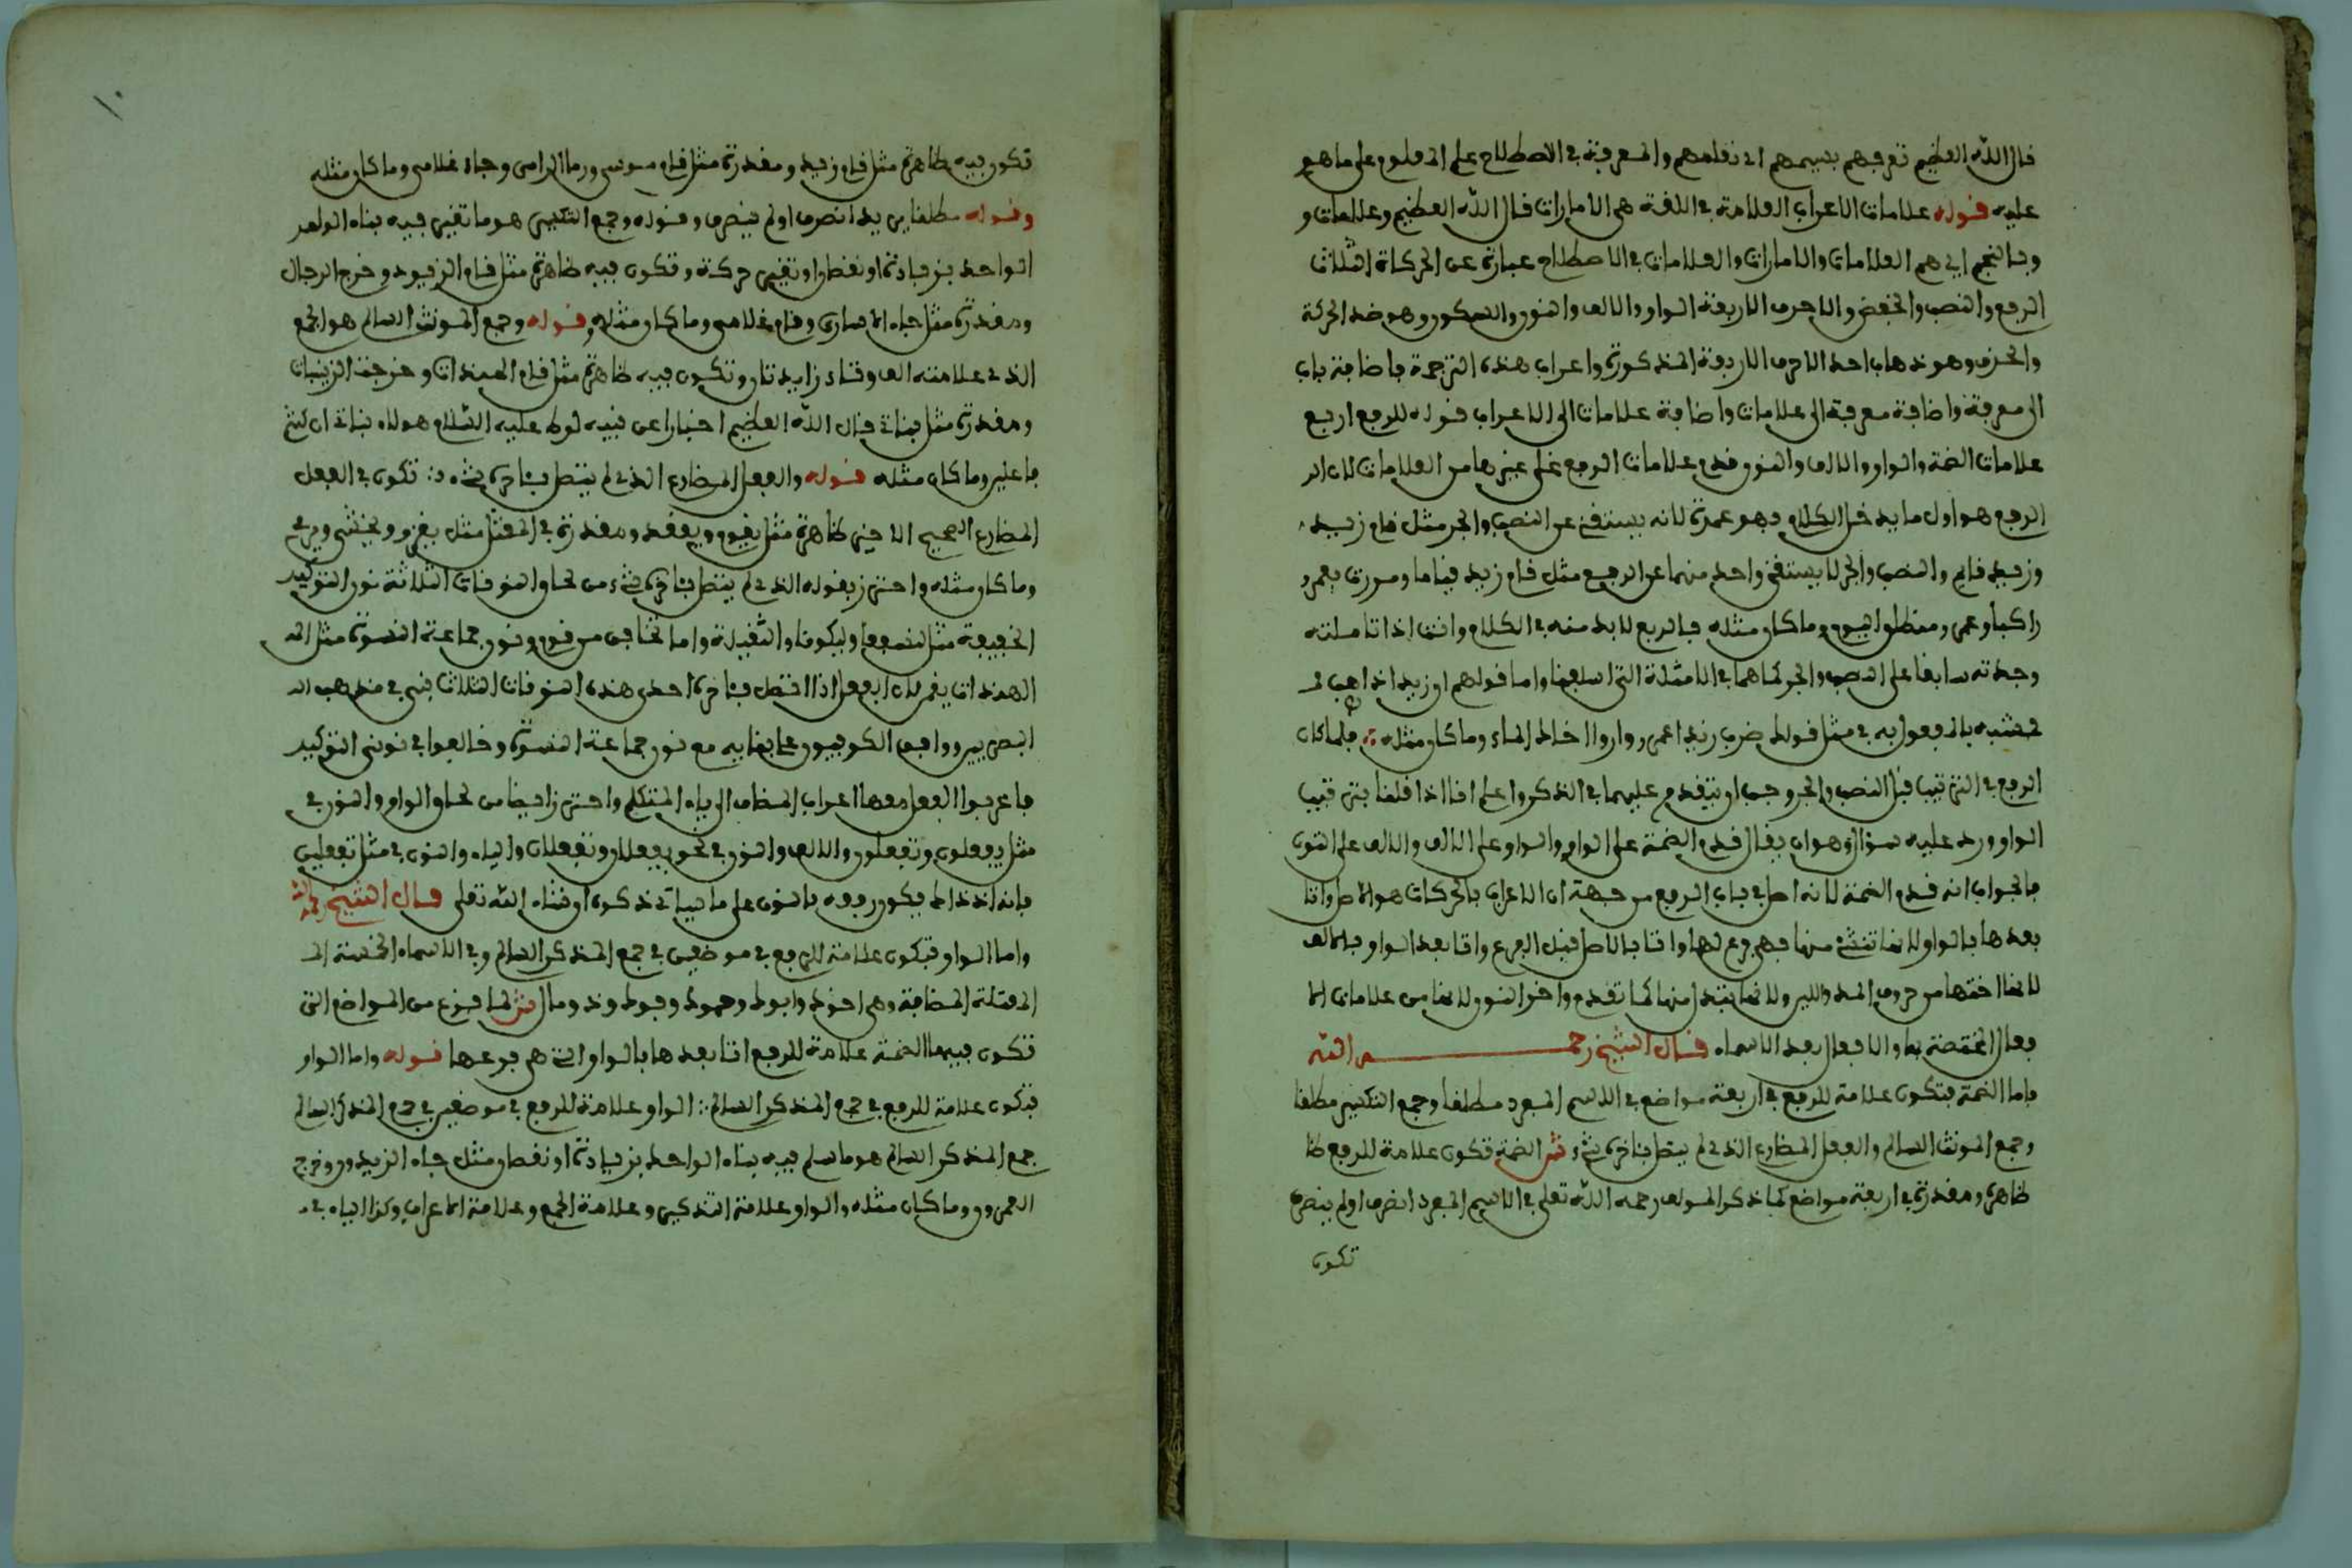 قال الله العظيم تعرفهم بسيمهم اي تعلمهم والمعرفة في الاصطلاح علم المعلوم على ما هو
عليه قوله علامات الاعراب العلامة في اللغة هي الامارات قال الله العظيم وعلامات و
وبالنجم اي هم العلامات والامارات والعلامات في الاصطلاح عبارة عن الحركات الثلاث
الرفع والنصب والخفض والاحرف الاربعة الواو والالف والنون والسكون وهو ضد الحركة
والحذف وهو ذهاب احد الاحرف الاربعة المذكورة واعراب هذه الترجمة باضافة باب
الى معرفة واضافة معرفة الى علامات واضافة علامات الى الاعراب قوله للرفع اربع
علامات الضمة والواو والالف والنون قدم علامات الرفع على غيرها من العلامات لان الر
الرفع هو اول ما يدخل الكلام وهو عمدة لانه يستغني عن النصب والجر مثل قام زيد
وزيد قايم والنصب والجر لا يستغني واحد منهما عن الرفع مثل قام زيد قياما ومررت بعمرو
راكبا وعمرو منطلق اليوم وما كان مثله فالرفع لابد منه في الكلام وانت اذا تاملته
وجدته سابقا على النصب والجر كما هما في الامثلة التي اسلفنا واما قولهم ان زيدا ذاهب فـ
فمشبه بالمفعول به في مثل قولك ضرب زيدا عمرو واروا اخاك الماء وما كان مثله فلما كان
الرفع في الترتيب قبل النصب والجر وجب ان يتقدم عليهما في الذكر واعلم انا اذا قلنا بترتيب
الواو ورد عليه سؤال وهو ان يقال قدم الضمة على الواو والواو على الالف والالف على النون
فالجواب انه قدم الضمة لانه اصل في باب الرفع من جهة ان الاعراب بالحركات هو الاصل واتا
بعدها بالواو لانها تنشئ منها فهي فرع لها واتا بالاصل قبل الفرع واتا بعد الواو بالالف
لانها اختها من حروف المد واللين ولانها تبتدا منها كما تقدم واخر النون لانها من علامات الا
فعال المختصة بها والافعال بعد الاسماء قال الشيخ رحمه الله
فاما الضمة فتكون علامة للرفع في اربعة مواضع في الاسم المفرد مطلقا وجمع التكسير مطلقا
وجمع المونث السالم والفعل المضارع الذي لم يتصل بئاخره شيء ش الضمة تكون علامة للرفع ظا
ظاهرة ومقدرة في اربعة مواضع كما ذكر المولف رحمه الله تعلى في الاسم المفرد انصرف او لم ينصرف
تكون
١٠
تكون فيه ظاهرة مثل قام زيد ومقدرة مثل قام موسى ورما الرامي وجاء غلامي وما كان مثله
وقوله مطلقا يريد انصرف او لم ينصرف وقوله وجمع التكسير هو ما تغير فيه بناء الواحد
الواحد بزيادة او نقصان او تغيير حركة وتكون فيه ظاهرة مثل قام الزيود وخرج الرجال
ومقدرة مثل جاء الاسارى وقام غلامي وما كان مثله وقوله وجمع المونث السالم هو الجمع
الذي علامته الف وتاء زايدتان وتكون فيه ظاهرة مثل قام الهندات وخرجت الزينبات
ومقدرة مثل بناتي قال الله العظيم اخبارا عن نبيه لوط عليه السلام هولاء بناتي ان كنتم
فاعلين وما كان مثله قوله والفعل المضارع الذي لم يتصل بئاخره شيء تكون في الفعل
المضارع الصحيح الاخير ظاهرة مثل يقوم ويقعد ومقدرة في المعتل مثل يغزو ويخشى ويرمي
وما كان مثله واحترز بقوله الذي لم يتصل بئاخره شيء من لحاق النونات الثلاثة نون التوكيد
الخفيفة مثل لنسفعا وليكونا والثقيلة واما تخافن من قوم ونون جماعة النسوة مثل الـ
الهندات يقمن لان الفعل اذا اتصل بئاخره احدى هذه النونات الثلاث بني في مذهب الـ
البصريين ووافق الكوفيون على بنايه مع نون جماعة النسوة وخالفوا في نوني التوكيد
فاعربوا الفعل معها اعراب المضاف الى ياء المتكلم واحترز ايضا من لحاق الواو والنون في
مثل يفعلون وتفعلون والالف والنون في نحو يفعلان وتفعلان والياء والنون في مثل تفعلين
فانه اذذاك يكون رفعه بالنون على ما سياتي ذكره ان شاء الله تعلى قال الشيخ رحمه الله
واما الواو فتكون علامة للرفع في موضعين في جمع المذكر السالم وفي الاسماء الخمسة الـ
المعتلة المضافة وهي اخوك وابوك وحموك وفوك وذو مال ش لما فرغ من المواضع التي
تكون فيها الضمة علامة للرفع اتا بعدها بالواو التي هي فرعها قوله واما الواو
فتكون علامة للرفع في جمع المذكر السالم الواو علامة للرفع في موضعين في جمع المذكر السالم
جمع المذكر السالم هو ما سلم فيه بناء الواحد بزيادة او نقصان مثل جاء الزيدون وخرج
العمرون وما كان مثله والواو علامة التذكير وعلامة الجمع وعلامة الاعراب وكذا الياء في